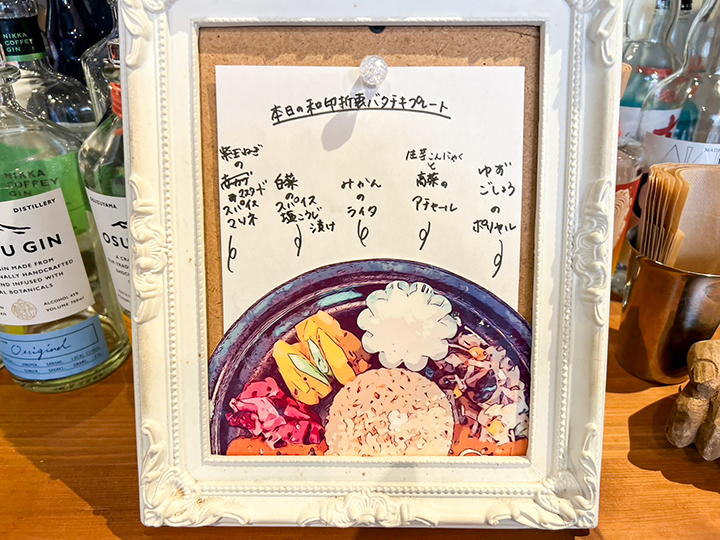 本日の和印折衷バクテキプレート
紫玉ねぎ
の
赤カブ
マスタード
スパイス
マリネ
白菜
の
スパイス
塩こうじ
漬け
みかん
の
ライタ
生芋こんにゃく
と
高菜の
アチャール
ゆず
ごしょう
の
ポリヤル
NIKKA
COFFEY
GIN
NIKKA
COFFEY
GIN
DISTILLERY
SU GIN
MADE FROM
NALLY HANDCRAFTED
AND INFUSED WITH
AL BOTANICALS
ALCOHOL 45%
VOLUME 700ml
Original
OSUZUYAMA
OSU